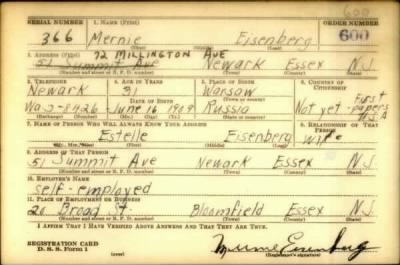 600
SERIAL NUMBER 1. NAME (Print) ORDER NUMBER
366 Mernie Eisenberg 600
(First) (Middle) (Last)
2. ADDRESS (Print) 72 MILLINGTON AVE
51 Summit Ave Newark Essex N.J.
(Number and street or R. F. D. number) (Town) (County) (State)
3. TELEPHONE 4. AGE IN YEARS 5. PLACE OF BIRTH 6. COUNTRY OF CITIZENSHIP
Newark 31 Warsaw First
DATE OF BIRTH (Town or county) Not yet - papers
Wa 2-8426 June 16 1909 Russia U.S.A
(Exchange) (Number) (Mo.) (Day) (Yr.) (State or country)
7. NAME OF PERSON WHO WILL ALWAYS KNOW YOUR ADDRESS 8. RELATIONSHIP OF THAT PERSON
Estelle Eisenberg wife
(Mr., Mrs., Miss) (First) (Middle) (Last)
9. ADDRESS OF THAT PERSON
51 Summit Ave Newark Essex N.J.
(Number and street or R. F. D. number) (Town) (County) (State)
10. EMPLOYER'S NAME
self-employed
11. PLACE OF EMPLOYMENT OR BUSINESS
20 Broad St. Bloomfield Essex N.J.
(Number and street or R. F. D. number) (Town) (County) (State)
I AFFIRM THAT I HAVE VERIFIED ABOVE ANSWERS AND THAT THEY ARE TRUE.
REGISTRATION CARD
D. S. S. Form 1 (over) Mernie Eisenberg
(Registrant's signature)